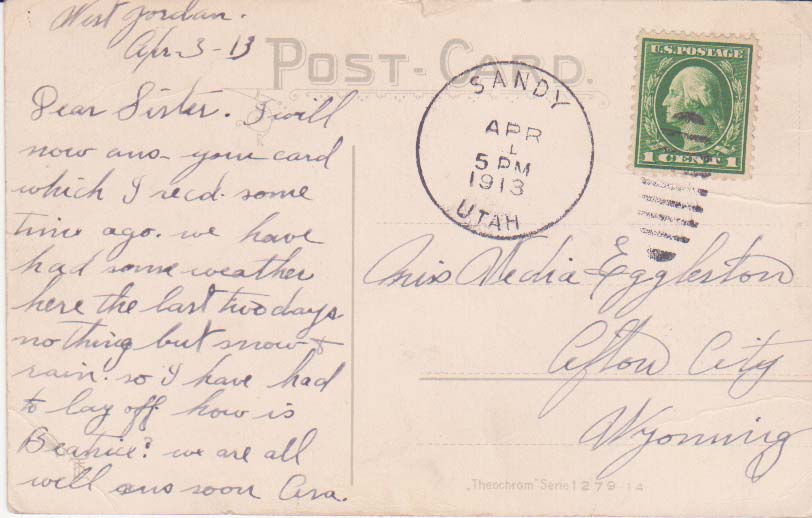 West Jordan.
Apr-3-13
POST-CARD.
Dear Sister. I will
now ans- your card
which I recd. some
time ago. we have
had some weather
here the last two days
nothing but snow &
rain. so I have had
to lay off. how is
Beatrice? we are all
well ans soon Asa.
SANDY
APR
1
5 PM
1913
UTAH
U.S. POSTAGE
1 CENT 1
Miss Media Eggleston
Afton City
Wyoming
„Theochrom" Serie 1279 14